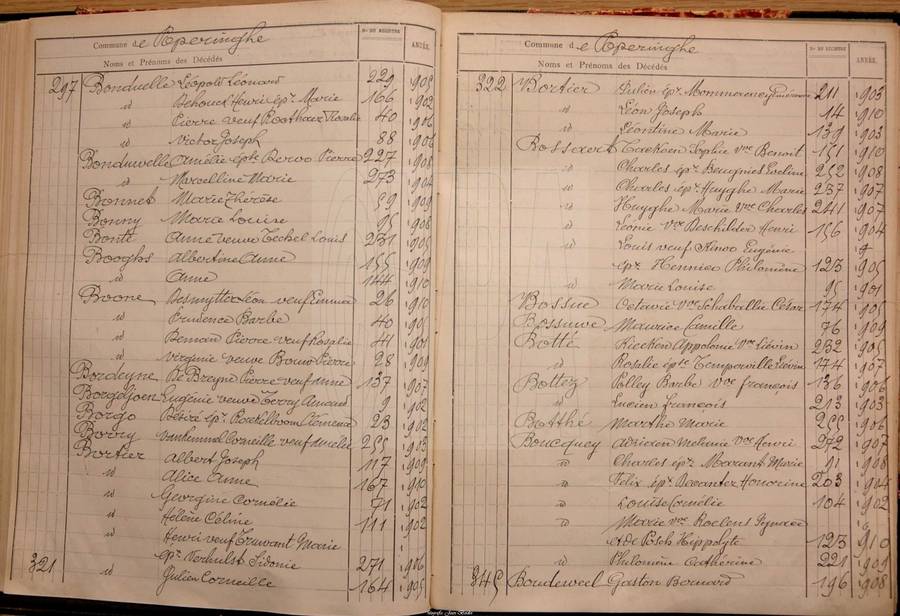 Commune de Poperinghe
No DU REGISTRE
ANNÉE.
Noms et Prénoms des Décédés
297 Bonduelle Léopold Léonard 229 1905
id Dehouck Henri épx Marie 166 1902
id Pierre veuf Rosalie 40 1906
id Victor Joseph 88 1906
Bonduwelle Amélie épse Pierre 227 1908
id Marcelline Marie 273 1904
Bonnet Marie Thérèse 59 1909
Bonny Marie Louise 95 1908
Bonte Anne veuve Teckel Louis 231 1905
Booghs Albertine Anne 155 1909
id Anne 144 1910
Boone Desmytter Léon veuf Emma 26 1910
id Prudence Barbe 40 1905
id Deman Pierre veuf Rosalie 41 1901
id Virginie veuve Pierre 28 1909
Bordeyne De Breyne Pierre veuf Anne 137 1907
Eugénie veuve Terry Amand 9 1902
Borgo Désiré épx Clémence 23 1902
Borry Corneille veuf 255 1903
Bortier Albert Joseph 117 1909
id Alice Anne 167 1910
id Georgine Cornélie 71 1902
id Hélène Céline 111 1902
id Henri veuf Truwant Marie
épx Verhulst Sidonie 271 1906
321 id Julien Corneille 164 1905
Commune de Poperinghe
No DU REGISTRE
ANNÉE.
Noms et Prénoms des Décédés
322 Bortier Julien épx Mommerency 211 1903
id Léon Joseph 14 1910
id Léontine Marie 139 1903
Bossaert Sophie Vve Benoit 151 1910
id Charles épx Beugnies Eveline 252 1908
id Charles épx Huyghe Marie 237 1907
id Huyghe Marie Vve Charles 241 1907
id Leonie Vve Beschilder Henri 156 1904
id Louis veuf Eugénie &
épx Philomène 123 1905
id Marie Louise 95 1901
Bossue Octavie Vve Schabaillie César 174 1905
Bossuwe Maurice Camille 76 1909
Botte Kiecken Appolonie Vve Liévin 232 1905
id Rosalie épse Temperville Liévin 174 1907
Bottez Polley Barbe Vve François 136 1906
id Lucien François 213 1903
Botthé Marthe Marie 255 1906
Boucquey Adrien Melanie Vve Henri 272 1907
id Charles épx Marant Marie 11 1908
id Félix épx Decanter Honorine 203 1904
id Louise Cornélie 104 1902
id Marie Vve Roelens Ignace
et de Posch Hippolyte 123 1910
id Philomène Catherine 221 1909
345 Boudeweel Gaston Bernard 196 1908